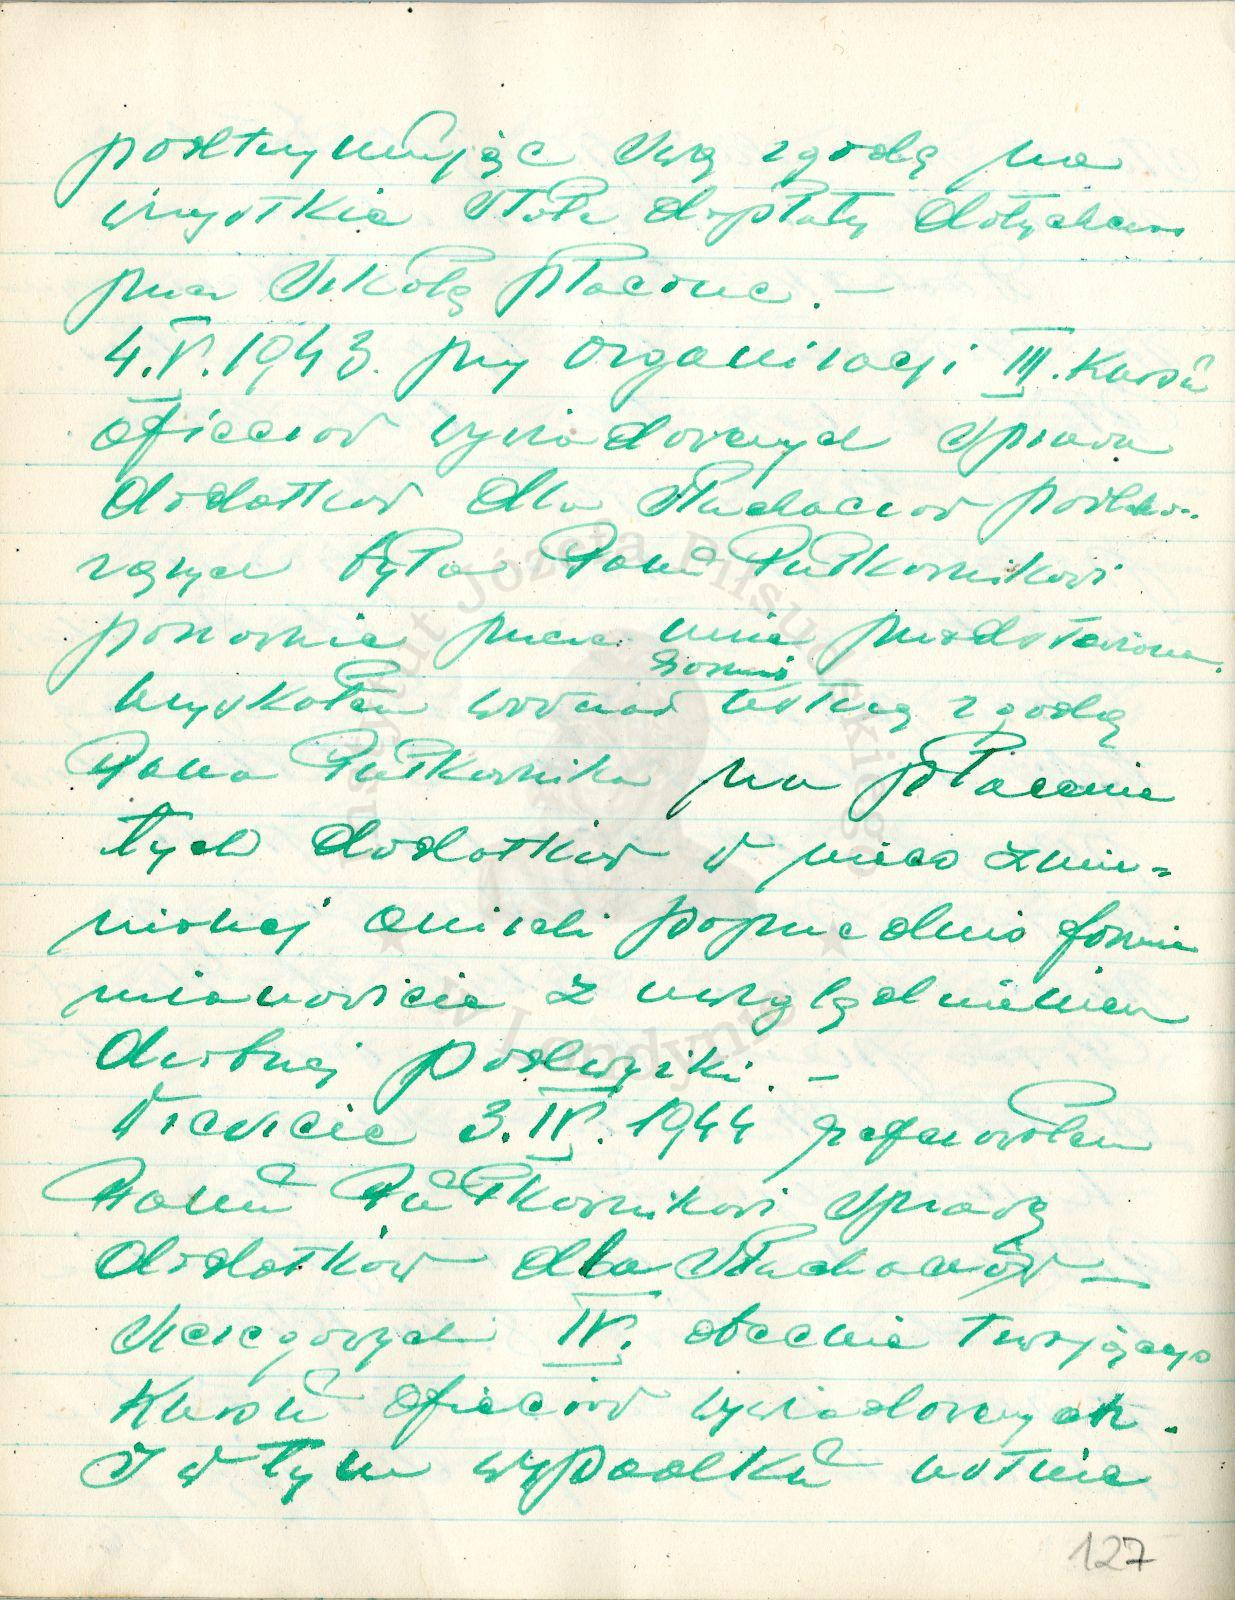 podtrzymując swą zgodę na
wszystkie stałe dopłaty dotychczas
przez Szkołę płacone. —
4.V.1943. przy organizacji III. Kursu
oficerów wywiadowczych sprawa
dodatków dla słuchaczów podcho-
rążych była Panu Pułkownikowi
ponownie przeze mnie przedstawiona.
Uzyskałem wówczas ustną zgodę
Pana Pułkownika na płacenie
tych dodatków w nieco zmie-
nionej aniżeli poprzednio formie
mianowicie z uwzględnieniem
drobnej podwyżki. —
Wreszcie 3.IV.1944 zreferowałem
Panu Pułkownikowi sprawę
dodatków dla słuchaczów —
szeregowych IV. obecnie trwającego
Kursu oficerów wywiadowczych.
I w tym wypadku ustnie
127
Instytut Józefa Piłsudskiego
w Londynie